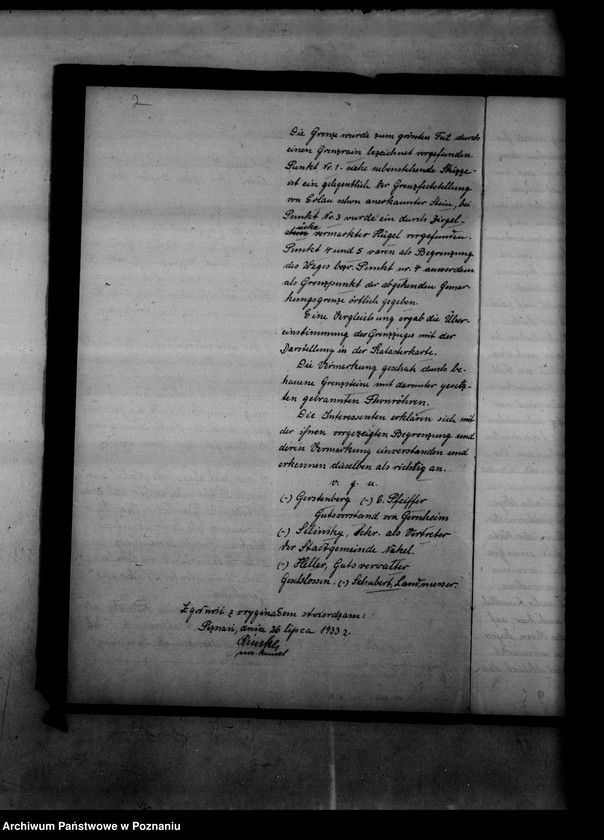 2
Die Grenze wurde zum grössten Teil durch
einen Grenzrain bezeichnet vorgefunden.
Punkt Nr. 1 - siehe nebenstehende Skizze -
ist ein gelegentlich der Grenzfeststellung
von Erlau schon anerkannter Stein, bei
Punkt Nr. 3 wurde ein durch Ziegel-
stücke vermarkter Hügel vorgefunden.
Punkt 4 und 5 waren als Begrenzung
des Weges bezw. Punkt nr. 4 ausserdem
als Grenzpunkt der abgehenden Gemar-
kungsgrenze örtlich gegeben.
Eine Vergleichung ergab die Über-
einstimmung des Grenzzuges mit der
Darstellung in der Katasterkarte.
Die Vermarkung geschah durch be-
hauene Grenzsteine mit darunter gesetz-
ten gebrannten Thonröhren.
Die Interessenten erklären sich mit
der ihnen vorgezeigten Begrenzung und
deren Vermarkung einverstanden und
erkennen dieselben als richtig an.
v. g. u.
(-) Gerstenberg (-) E. Pfeiffer
Gutsvorstand von Gernheim
(-) Silinsky, Sekr. als Vertreter
der Stadtgemeinde Nakel.
(-) Heller, Gutsverwalter
Geschlossen. (-) Schubert, Landmesser.
Zgodność z oryginałem stwierdzam:
Poznań, dnia 26 lipca 1933 r.
Archiwum Państwowe w Poznaniu